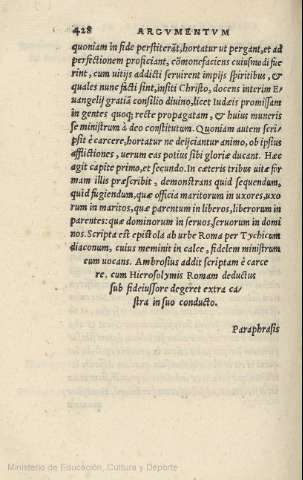 428 ARGVMENTVM
quoniam in fide perstiterāt, hortatur ut pergant, et ad
perfectionem proficiant, cōmonefaciens cuiusmodi fue
rint, cum uitijs addicti seruirent impijs spiritibus, &
quales nunc facti sint, insiti Christo, docens interim E
uangelij gratiā consilio diuino, licet Iudæis promissam
in gentes quoq; recte propagatam, & huius muneris
se ministrum à deo constitutum. Quoniam autem scri
psit è carcere, hortatur ne dejiciantur animo, ob ipsius
afflictiones, uerum eas potius sibi gloriæ ducant. Hæc
agit capite primo, et secundo. In cæteris tribus uitæ for
mam illis præscribit, demonstrans quid sequendum,
quid fugiendum, quæ officia maritorum in uxores, uxo
rum in maritos, quæ parentum in liberos, liberorum in
parentes: quæ dominorum in seruos, seruorum in domi
nos. Scripta est epistola ab urbe Roma per Tychicum
diaconum, cuius meminit in calce, fidelem ministrum
eum uocans. Ambrosius addit scriptam è carce
re, cum Hierosolymis Romam deductus
sub fideiussore degeret extra ca/
stra in suo conducto.
Paraphrasis
Ministerio de Educación, Cultura y Deporte